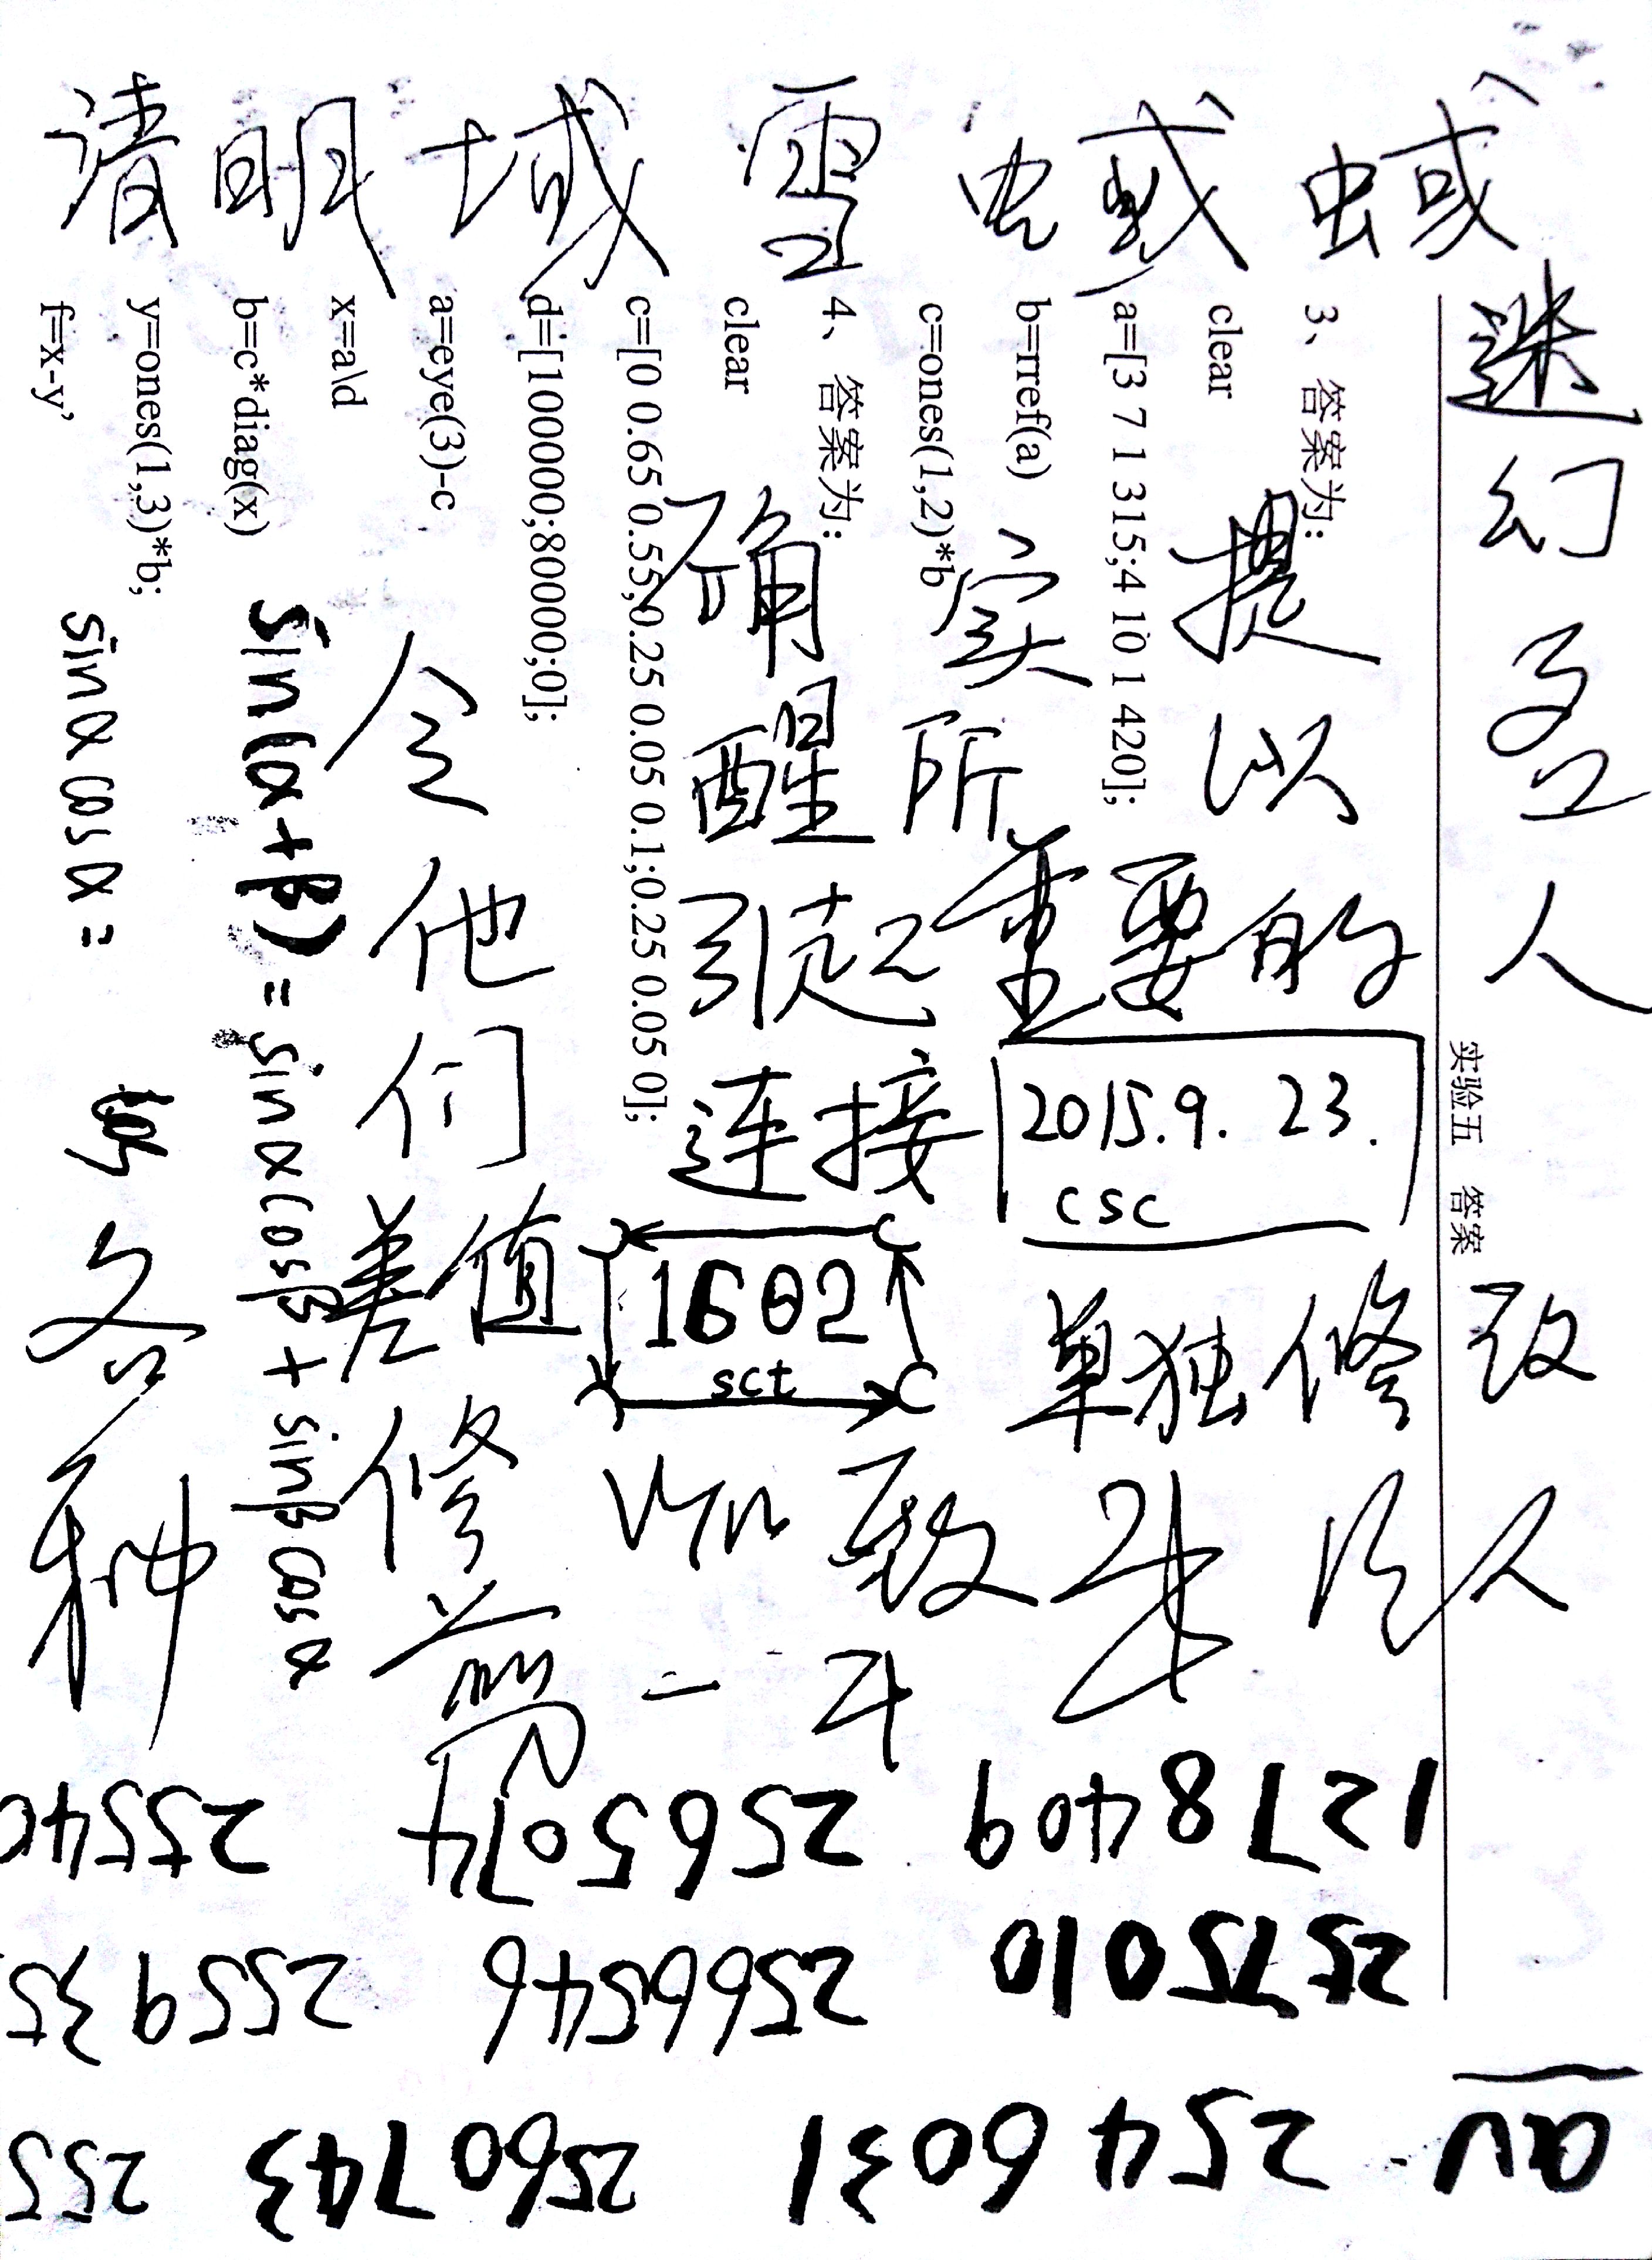 实验五 答案
3、答案为:
clear
a=[3 7 1 315;4 10 1 420];
b=rref(a)
c=ones(1,2)*b
4、答案为:
clear
c=[0 0.65 0.55;0.25 0.05 0.1;0.25 0.05 0];
d=[100000;80000;0];
a=eye(3)-c
x=a\d
b=c*diag(x)
y=ones(1,3)*b;
f=x-y'
清明 城 雪
迷幻
人
提 以
确 实 所
醒
令 引起 重要的
他
们 连接
2015.9. 23.
csc
差值
1602
sct
单独修 改
各 修
种
致
sin(α+β) = sinαcosβ + sinβcosα
sinαcosα =
cos
1278409
2565074
2554
2575010
2566546
255935
2546031
2560743
255